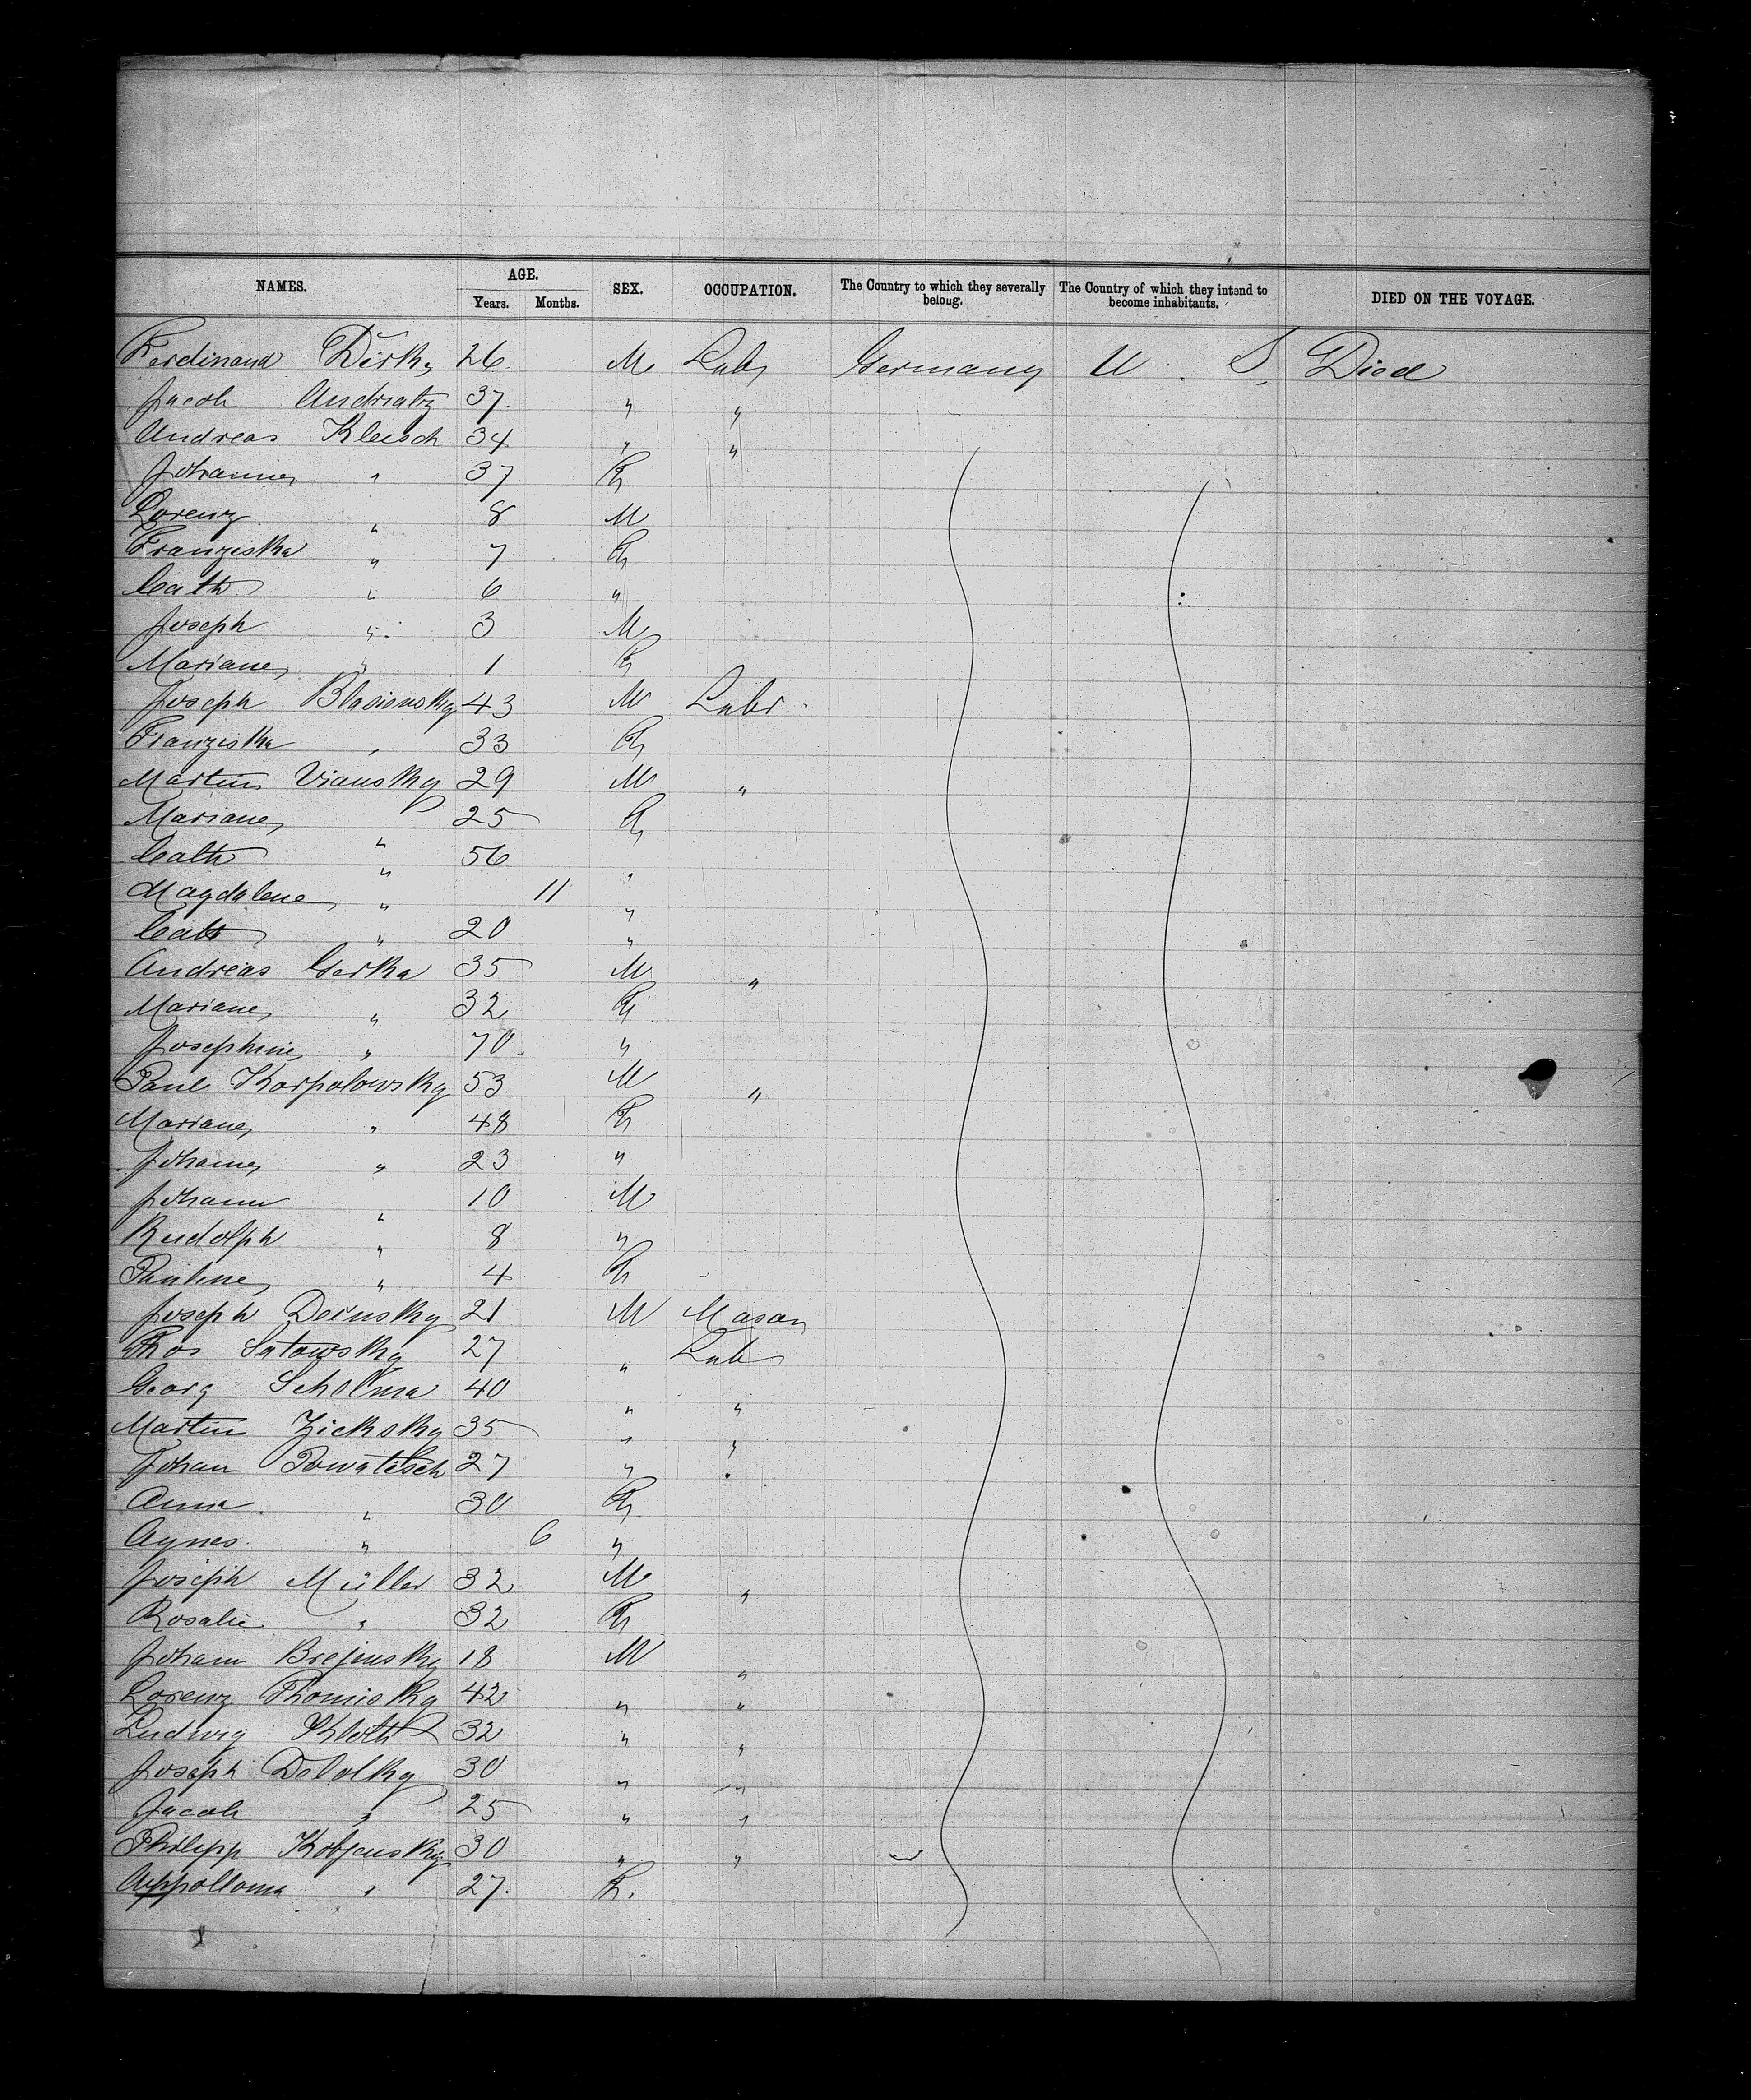 NAMES. AGE. SEX. OCCUPATION. The Country to which they severally belong. The Country of which they intend to become inhabitants. DIED ON THE VOYAGE.
Years. Months.
Ferdinand Dirks 26. M Labr Germany U. S. Died
Jacob Andreatz 37. " "
Andreas Kleisch 34 " "
Johanne " 37 F
Lorenz " 8 M
Franziska " 7 F
Cath " 6 "
Joseph " 3 M
Mariane " 1 F
Joseph Blasiensky 43 M Labr.
Franziska " 33 F
Martin Viansky 29 M "
Mariane " 25 F
Cath " 56 "
Magdalene " 11 "
Cath " 20 "
Andreas Gerka 35 M "
Mariane " 32 F
Josephine " 70 "
Paul Karpolowsky 53 M "
Mariane " 48 F
Johanne " 23 "
Johann " 10 M
Rudolph " 8 "
Pauline " 4 F
Joseph Deinsky 21 M Mason
Thos Satowsky 27 " Lab
Georg Scholma 40 " "
Martin Zicksky 35 " "
Johan Powatesch 27 " "
Anna " 30 F
Agnes " 6 "
Joseph Müller 32 M "
Rosalie " 32 F
Johann Brejensky 18 M "
Lorenz Thomisky 42 " "
Ludwig Kloth 32 " "
Joseph Debolky 30 " "
Jacob " 25 " "
Philipp Kobjensky 30 " "
Appollonia " 27. F.